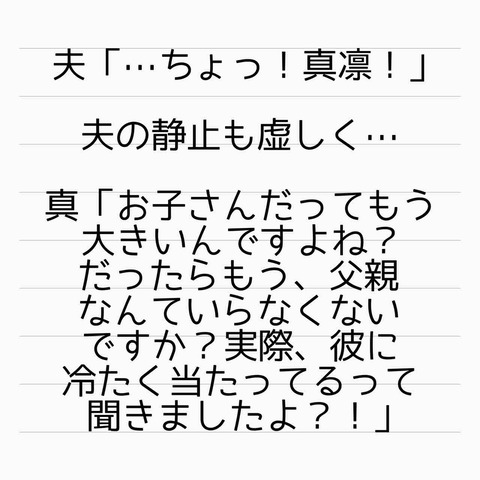 夫「…ちょっ！真凛！」
夫の静止も虚しく…
真「お子さんだってもう
大きいんですよね？
だったらもう、父親
なんていらなくない
ですか？実際、彼に
冷たく当たってるって
聞きましたよ？！」